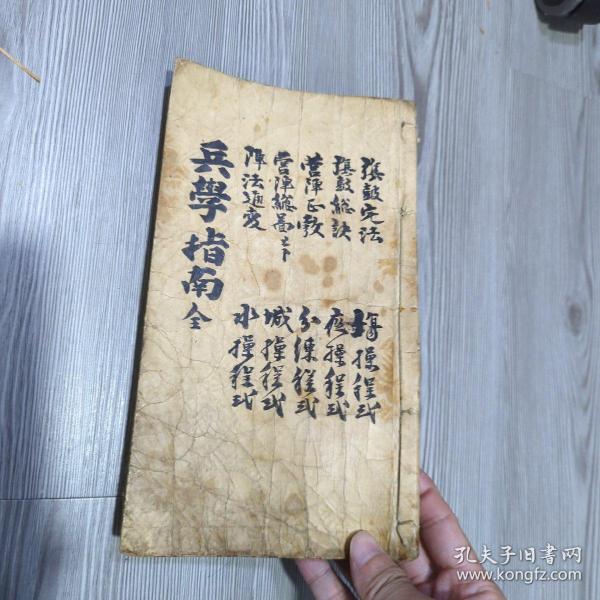 兵學指南 全
旗鼓定法
旗鼓總訣
營陣正彀
營陣總圖 上下
陣法通變
塲操程式
夜操程式
分練程式
城操程式
水操程式
孔夫子旧书网
www.kongfz.com